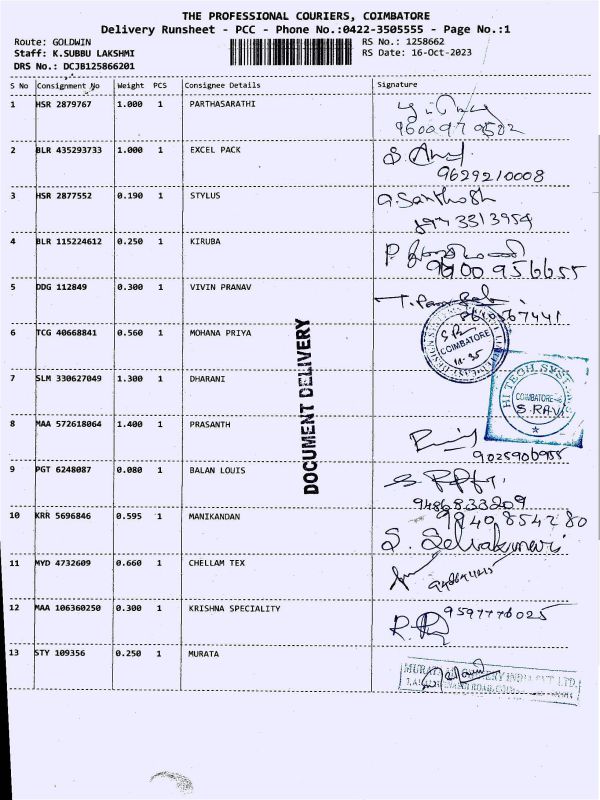 THE PROFESSIONAL COURIERS, COIMBATORE
Delivery Runsheet - PCC - Phone No.:0422-3505555 - Page No.:1
Route: GOLDWIN
Staff: K.SUBBU LAKSHMI
DRS No.: DCJB125866201
RS No.: 1258662
RS Date: 16-Oct-2023
S No Consignment No Weight PCS Consignee Details Signature
1 HSR 2879767 1.000 1 PARTHASARATHI
2 BLR 435293733 1.000 1 EXCEL PACK
9629210008
3 HSR 2877552 0.190 1 STYLUS
A.Santhosh
4 BLR 115224612 0.250 1 KIRUBA
5 DDG 112849 0.300 1 VIVIN PRANAV
6 TCG 40668841 0.560 1 MOHANA PRIYA
COIMBATORE
7 SLM 330627049 1.300 1 DHARANI
HI TECH SYST
COIMBATORE
S.RAVI
8 MAA 572618064 1.400 1 PRASANTH
9025906955
9 PGT 6248087 0.080 1 BALAN LOUIS
9486833209
10 KRR 5696846 0.595 1 MANIKANDAN
9840854280
S. Selvakumari
11 MYD 4732609 0.660 1 CHELLAM TEX
12 MAA 106360250 0.300 1 KRISHNA SPECIALITY
9597776025
13 STY 109356 0.250 1 MURATA
DOCUMENT DELIVERY